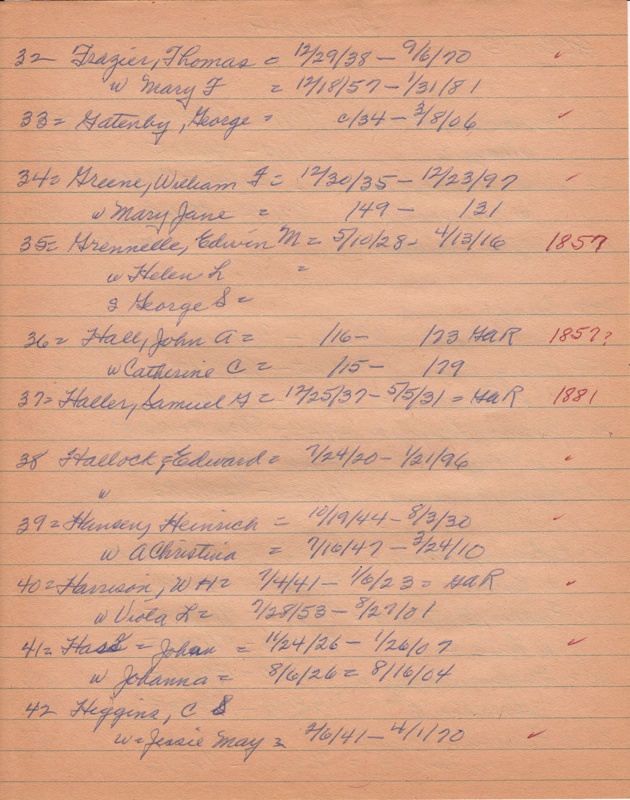 32 Frazier, Thomas = 12/29/38 – 9/6/70 ✓
w Mary F = 12/18/57 – 1/31/81
33= Gatenby, George = c/34 – 3/8/06 ✓
34= Greene, William F = 12/30/35 – 12/23/97 ✓
w Mary Jane = /49 – /31
35= Grennelle, Edwin M = 5/10/28 – 4/13/16 1857
w Helen L =
& George S =
36= Hall, John A = /16 – /73 GAR 1857?
w Catherine C = /15 – /79
37= Haller, Samuel G = 12/25/37 – 5/5/31 = GAR 1881
38 Hallock, Edward = 7/24/20 – 1/21/96 ✓
w
39= Hansen, Heinrich = 10/19/44 – 8/3/30 ✓
w A Christina = 7/16/47 – 3/24/10
40= Harrison, W H = 7/4/41 – 1/6/23 = GAR ✓
w Viola L = 7/28/53 – 8/27/01
41= = Johan = 11/24/26 – 1/26/07 ✓
w Johanna = 8/6/26 = 8/16/04
42 Higgins, C S
w= Jessie May = 2/6/41 – 4/1/70 ✓